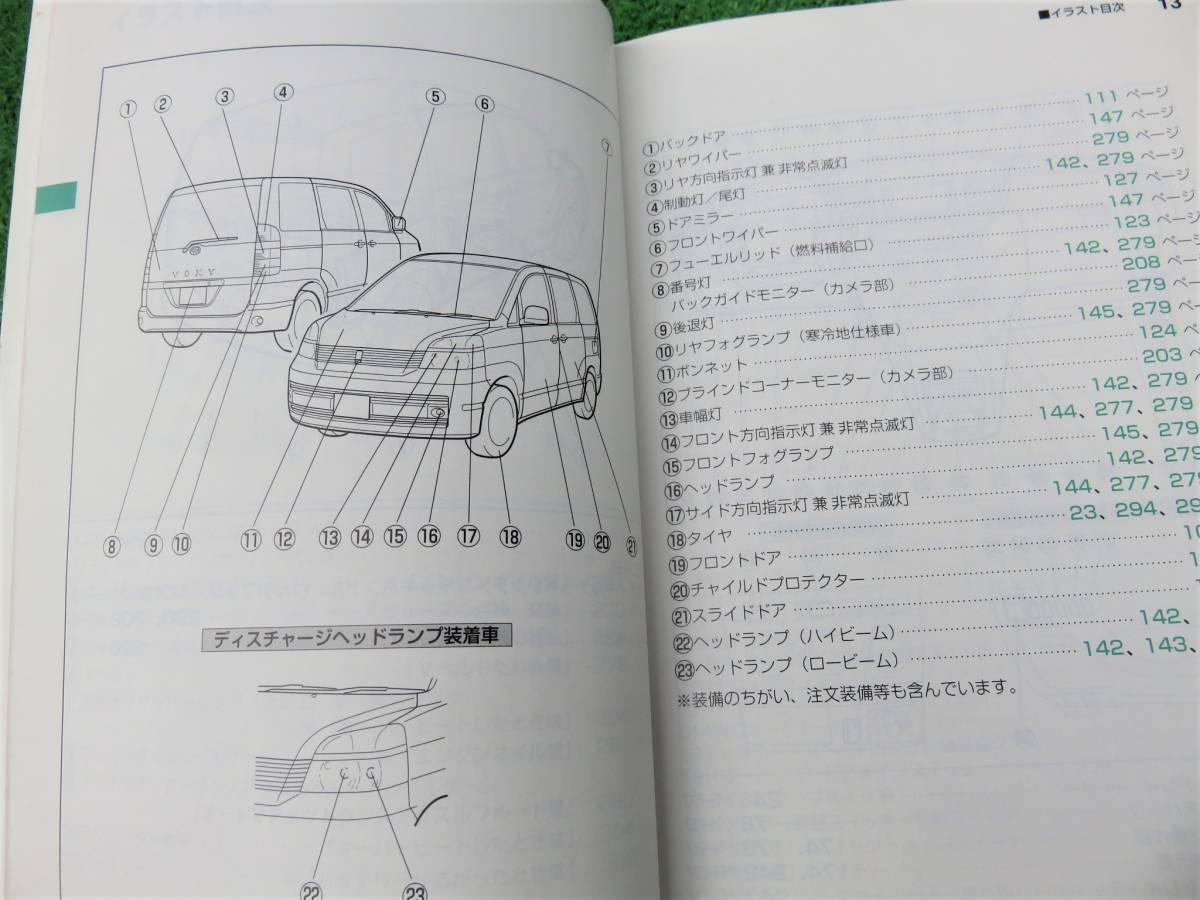 ■イラスト目次 13
① ② ③ ④ ⑤ ⑥ ⑦
VOXY
⑧ ⑨ ⑩ ⑪ ⑫ ⑬ ⑭ ⑮ ⑯ ⑰ ⑱ ⑲ ⑳ ㉑
ディスチャージヘッドランプ装着車
㉒ ㉓
①バックドア 111 ページ
②リヤワイパー 147 ページ
③リヤ方向指示灯 兼 非常点滅灯 279 ページ
④制動灯／尾灯 142、279 ページ
⑤ドアミラー 127 ページ
⑥フロントワイパー 147 ページ
⑦フューエルリッド（燃料補給口） 123 ページ
⑧番号灯 142、279 ペー
バックガイドモニター（カメラ部） 208 ペー
⑨後退灯 279 ペー
⑩リヤフォグランプ（寒冷地仕様車） 145、279 ペ
⑪ボンネット 124 ペ
⑫ブラインドコーナーモニター（カメラ部） 203 ペ
⑬車幅灯 142、279
⑭フロント方向指示灯 兼 非常点滅灯 144、277、279
⑮フロントフォグランプ 145、279
⑯ヘッドランプ 142、279
⑰サイド方向指示灯 兼 非常点滅灯 144、277、279
⑱タイヤ 23、294、29
⑲フロントドア 10
⑳チャイルドプロテクター 1
㉑スライドドア
㉒ヘッドランプ（ハイビーム） 142、
㉓ヘッドランプ（ロービーム） 142、143、
※装備のちがい、注文装備等も含んでいます。